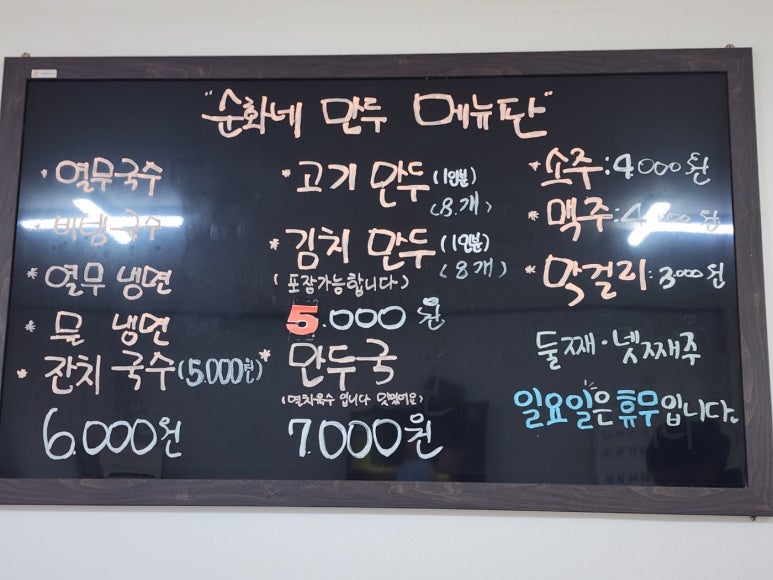 "순화네 만두 메뉴판"
* 열무국수
* 비빔국수
* 열무 냉면
* 물 냉면
* 잔치 국수 (5.000원)
6.000원
* 고기 만두 (1인분)
(8.개)
* 김치 만두 (1인분)
(8개)
(포장가능합니다)
5.000원
* 만두국
(멸치육수 입니다 맛있어요)
7.000원
* 소주:4000원
* 맥주:4.000원
* 막걸리:3.000원
둘째·넷째주
일요일은 휴무입니다.